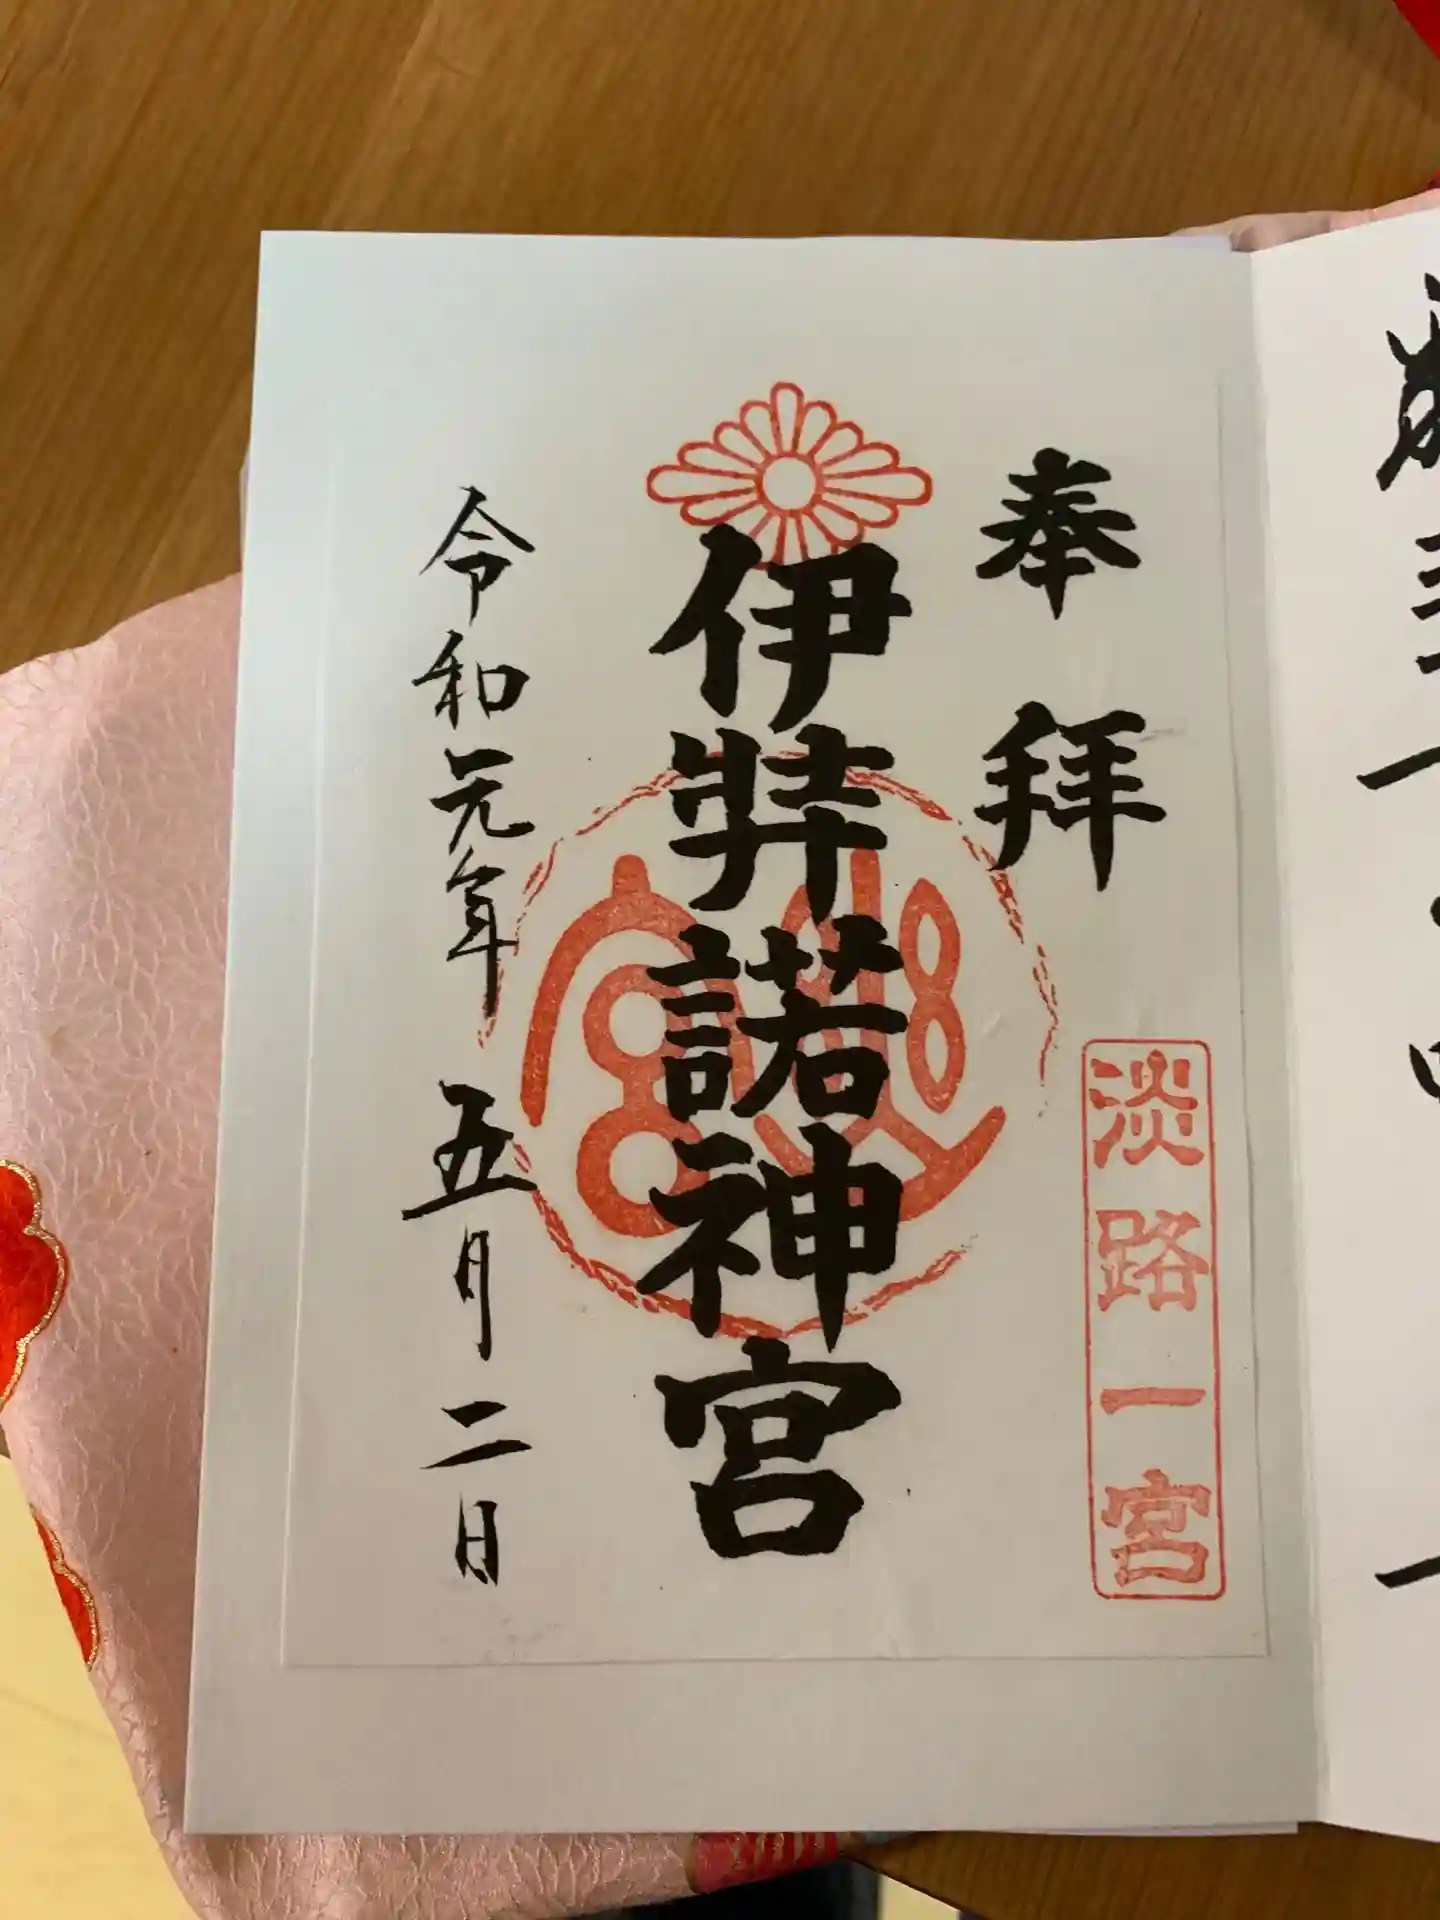 奉拝
淡路一宮
伊弉諾神宮
令和元年 五月二日